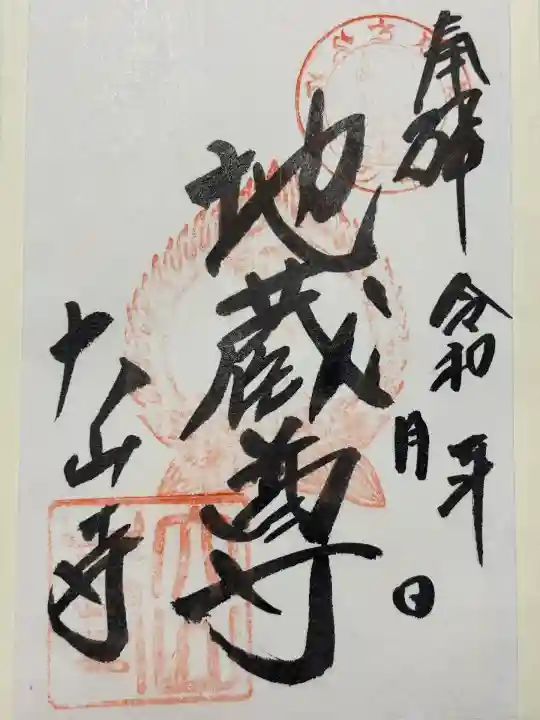 奉拝 令和 年
月 日
地蔵尊
大山寺